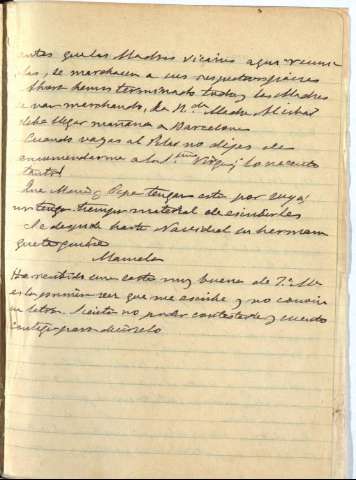 antes que las Madres Vicarias aqui reuni
das, se marchasen a sus respectivas
Ahora hemos terminado todo y las Madres
se van marchando, la Rda Madre
debe llegar mañana a Barcelona
Cuando vayas al Pilar no dejes de
encomendarme a la Virgen ¡lo necesito
tanto!
Que Maria y Pepe tengan esta por suya,
no tengo tiempo material de escribirles
Se despide hasta Navidad su hermana
que te quiere
Manuela
He recibido una carta muy buena de
es la primera vez que me escribe y no conocia
su letra. Siento no poder contestarle y cuento
contigo para decirselo